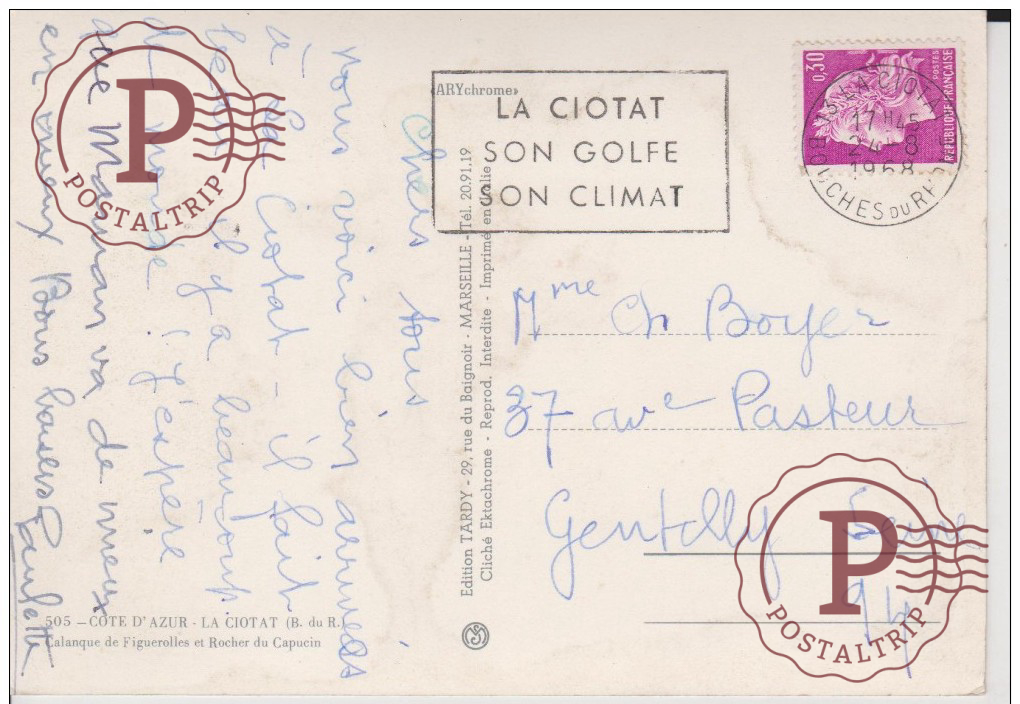 «ARYchrome»
LA CIOTAT
SON GOLFE
SON CLIMAT
0,30
POSTES
REPUBLIQUE FRANÇAISE
13 LA CIOTAT
17 H 45
1968
BOUCHES DU RH
Chers tous
nous voici bien arrivées
à La Ciotat - il fait
beau il y a beaucoup
de monde ! J'espère
que Maman va de mieux
en mieux Bons baisers Paulette
Edition TARDY - 29, rue du Baignoir - MARSEILLE - Tél. 20.91.19
Cliché Ektachrome - Reprod. Interdite - Imprimé en Italie
Mme Ch Boyer
37 ave Pasteur
Gentilly Seine
94
505 — COTE D'AZUR - LA CIOTAT (B. du R.)
Calanque de Figuerolles et Rocher du Capucin
P
POSTALTRIP
P
POSTALTRIP